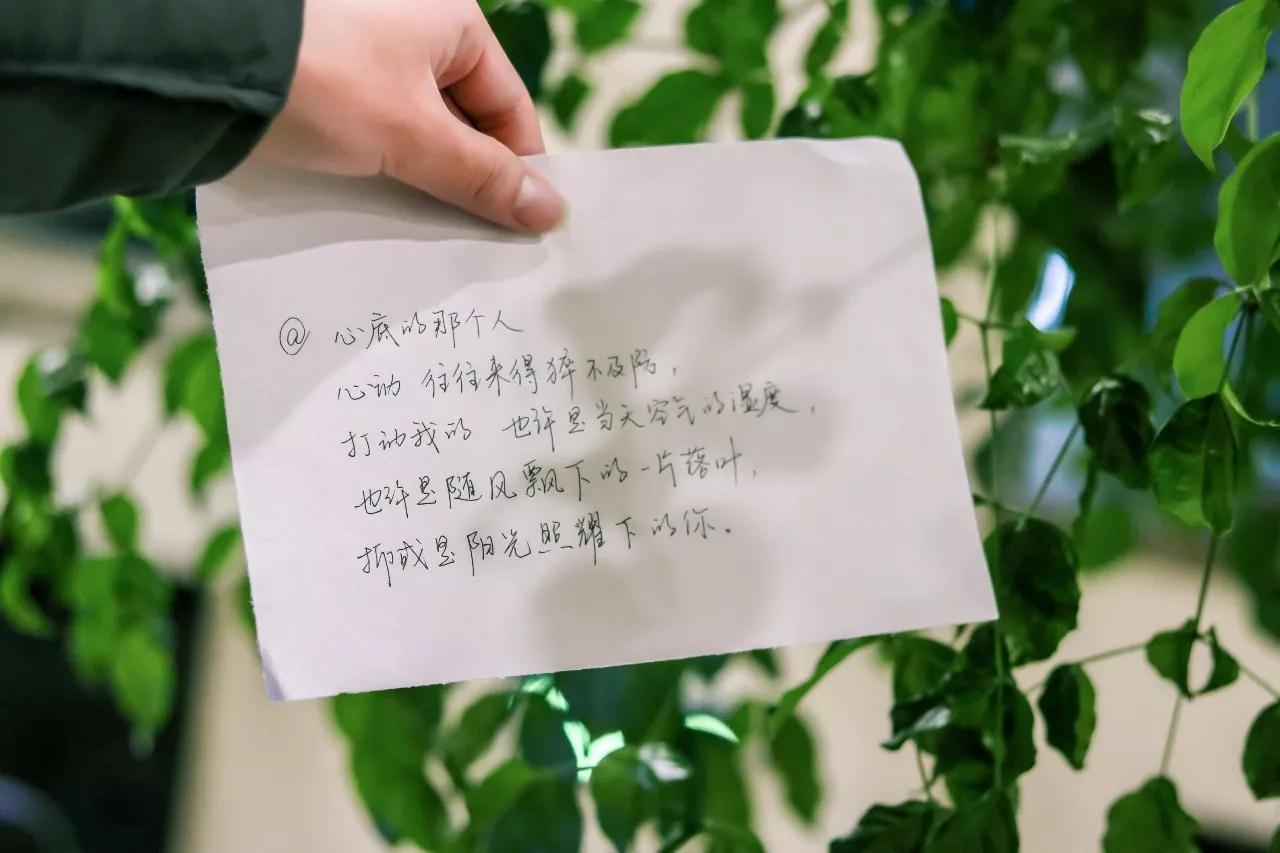 @ 心底的那个人
心动 往往来得猝不及防,
打动我的 也许是当天空气的温度,
也许是随风飘下的一片落叶,
抑或是阳光照耀下的你。